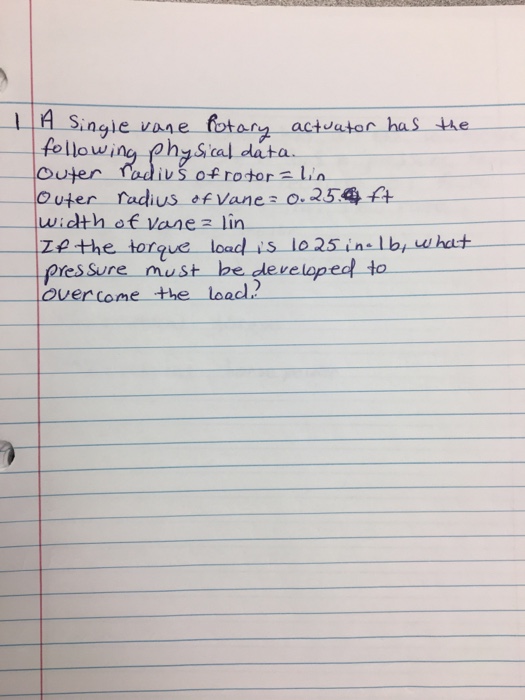 1 A Single vane Rotary actuator has the
following physical data.
Outer radius of rotor = 1in
Outer radius of vane = 0.25 ft
width of vane = 1in
If the torque load is 1025 in-lb, what
pressure must be developed to
overcome the load?